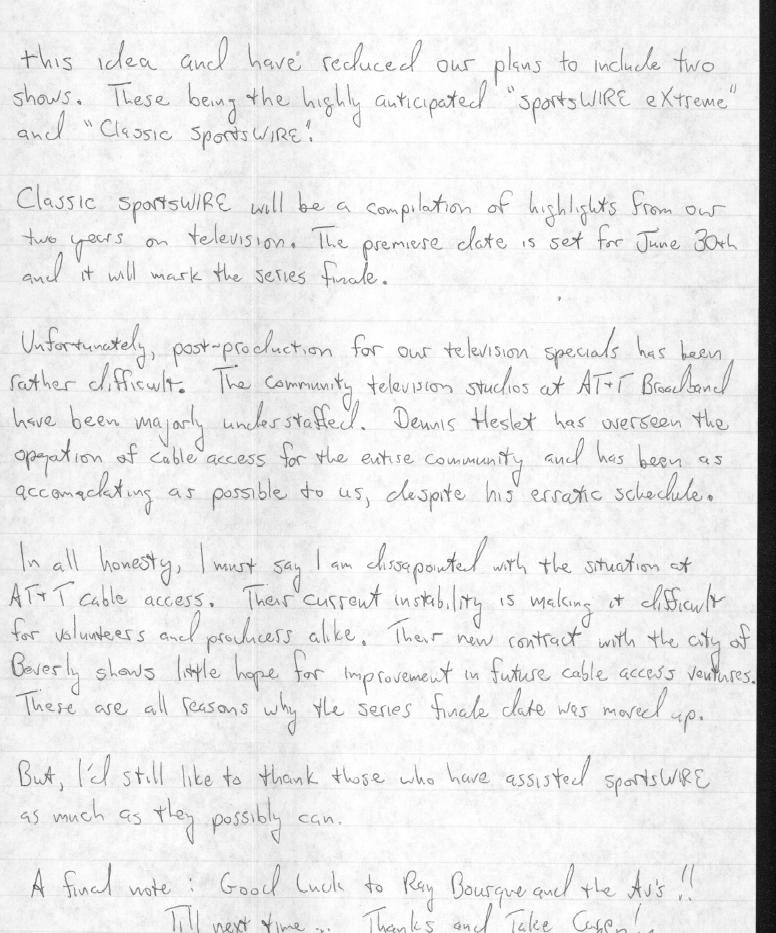 this idea and have reduced our plans to include two
shows. These being the highly anticipated "sportsWIRE eXtreme"
and "Classic sportsWIRE".
Classic sportsWIRE will be a compilation of highlights from our
two years on television. The premiere date is set for June 30th
and it will mark the series finale.
Unfortunately, post-production for our television specials has been
rather difficult. The community television studios at AT+T Broadband
have been majorly understaffed. Dennis Heslet has overseen the
operation of cable access for the entire community and has been as
accomadating as possible to us, despite his erratic schedule.
In all honesty, I must say I am dissapointed with the situation at
AT+T cable access. Their current instability is making it difficult
for volunteers and producers alike. Their new contract with the city of
Beverly shows little hope for improvement in future cable access ventures.
These are all reasons why the series finale date was moved up.
But, I'd still like to thank those who have assisted sportsWIRE
as much as they possibly can.
A final note: Good Luck to Ray Bourque and the Av's!!
Till next time... Thanks and Take Care!